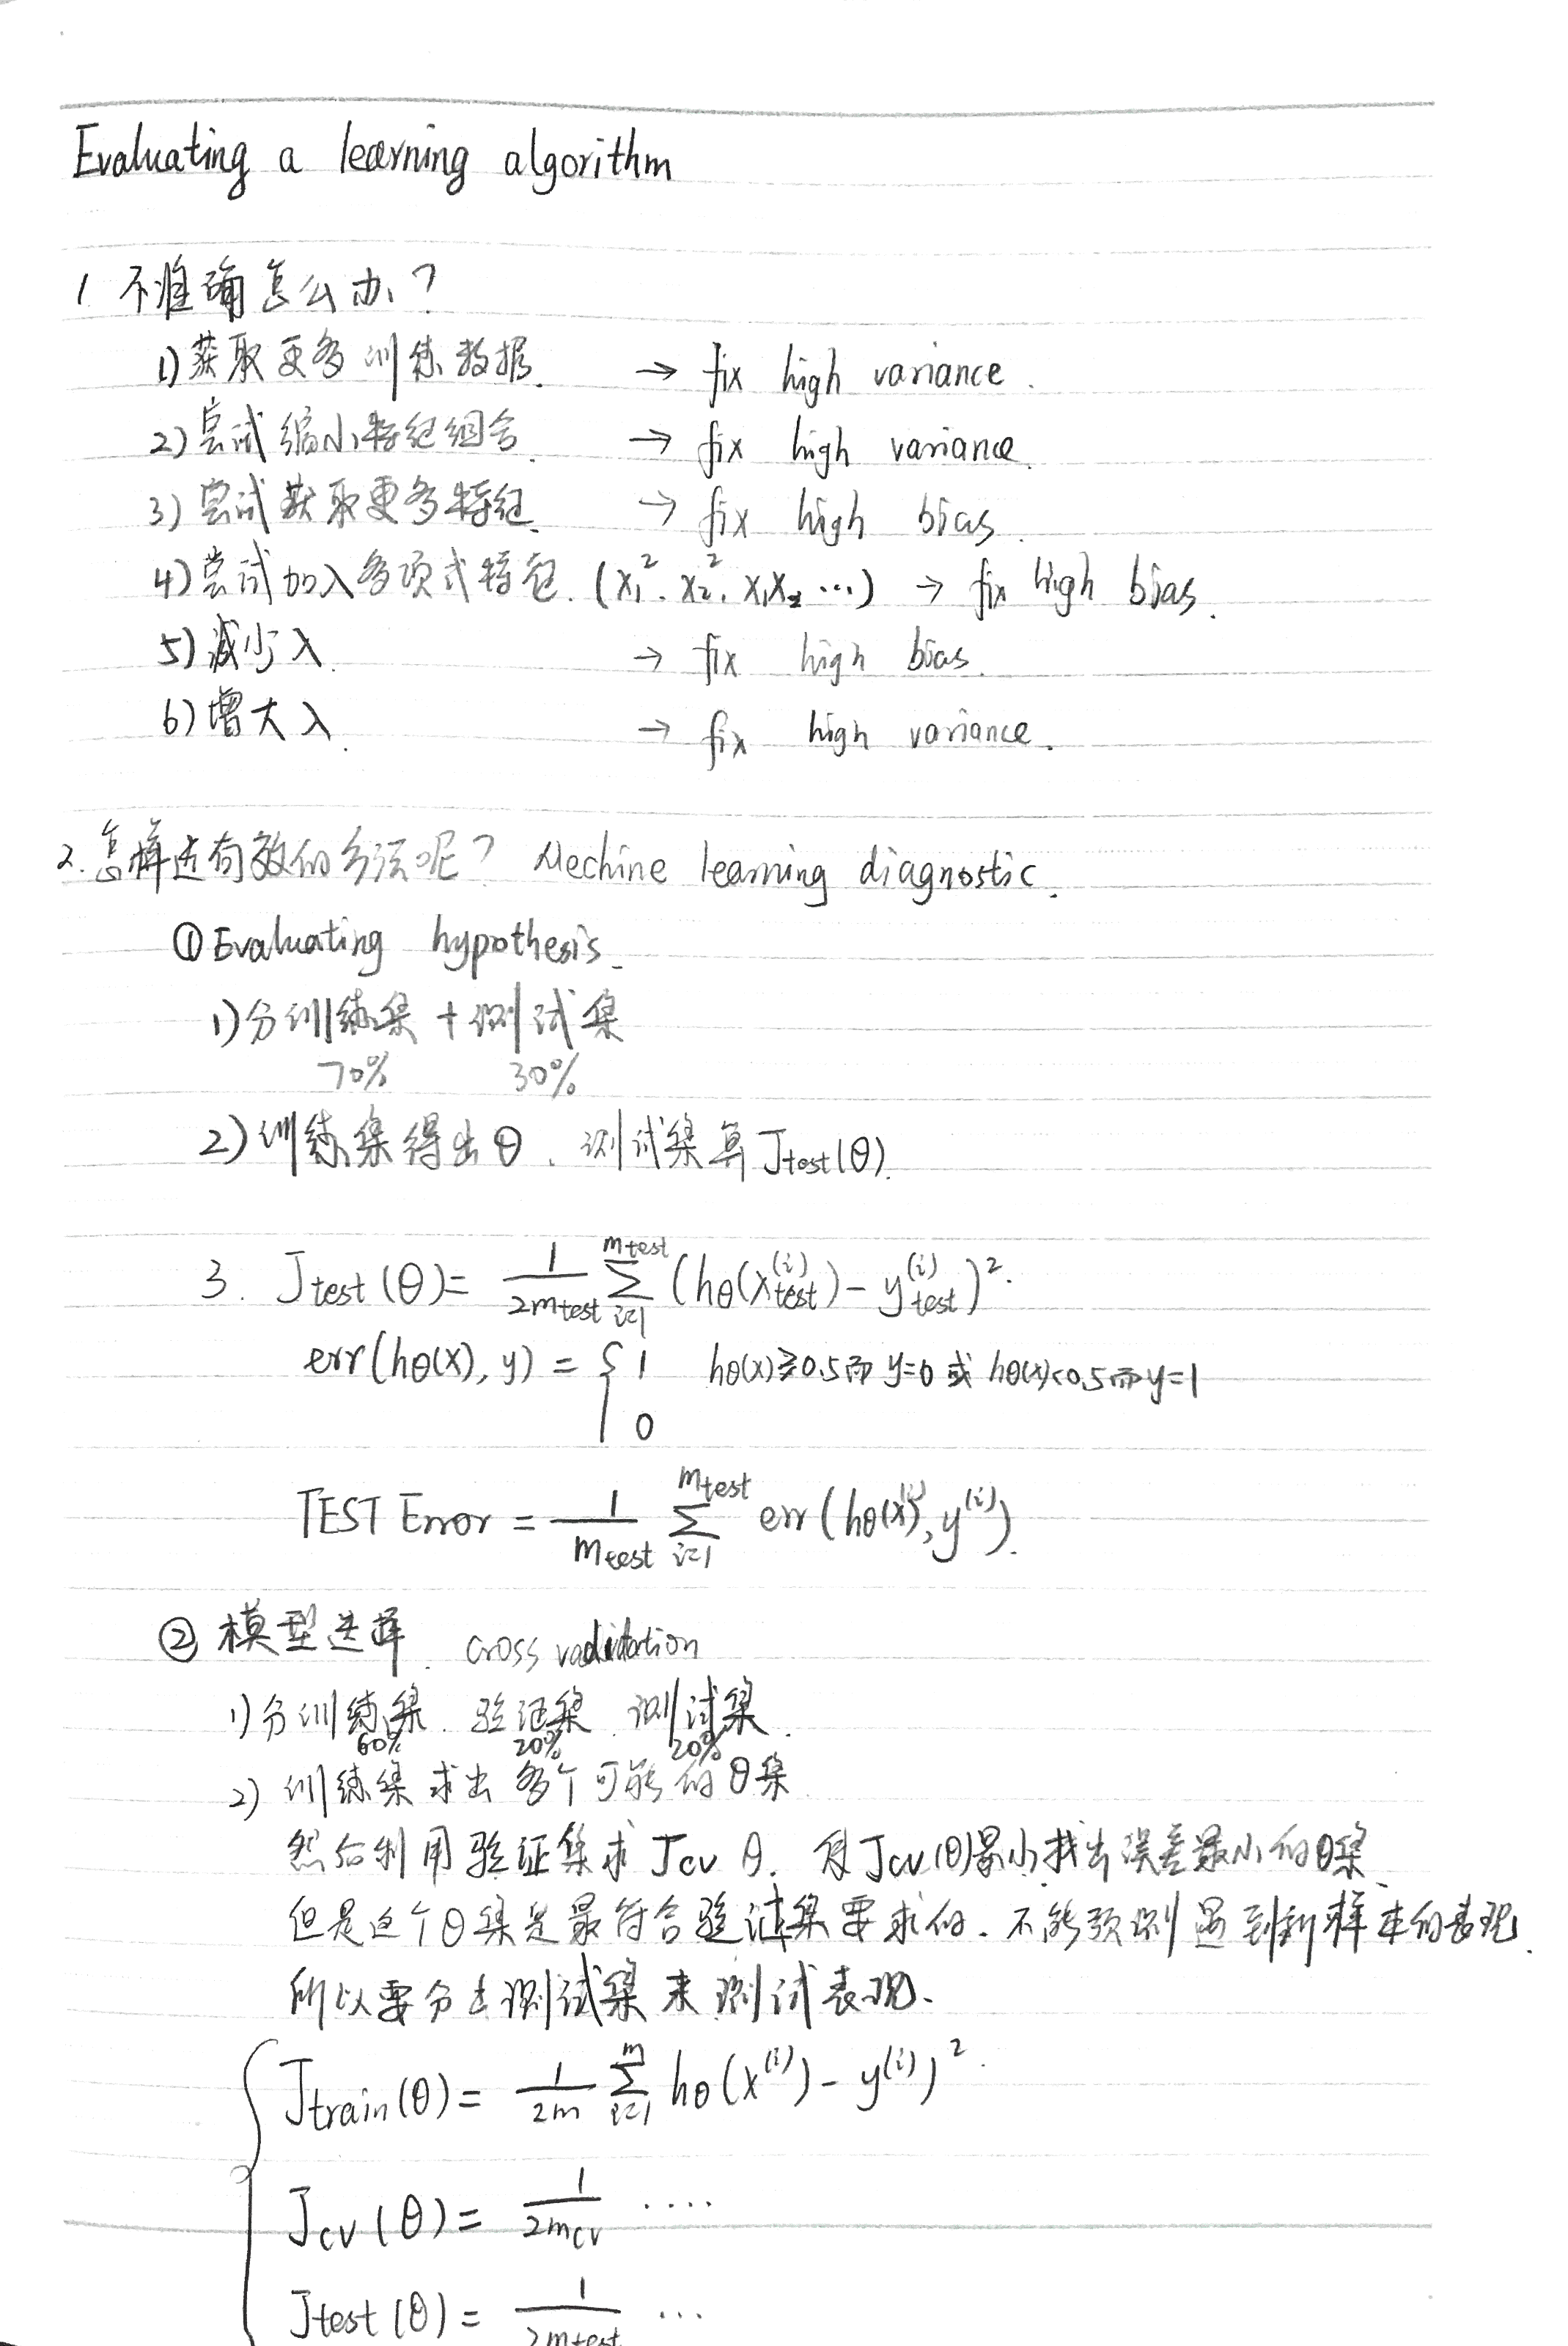 Evaluating a learning algorithm
1 不准确怎么办？
1) 获取更多训练数据. → fix high variance.
2) 尝试缩小特征组合. → fix high variance.
3) 尝试获取更多特征. → fix high bias.
4) 尝试加入多项式特征. (x₁². x₂². x₁x₂ ···) → fix high bias.
5) 减少 λ. → fix high bias.
6) 增大 λ. → fix high variance.
2. 怎样选有效的方法呢？ Mechine learning diagnostic.
① Evaluating hypothesis.
1) 分训练集 + 测试集
70% 30%
2) 训练集得出 θ. 测试集算 Jtest(θ).
3. Jtest(θ) = 1/2mtest Σ_{i=1}^{mtest} (hθ(x_test^(i)) - y_test^(i))².
err(hθ(x), y) = { 1 hθ(x)≥0.5而 y=0 或 hθ(x)<0.5而 y=1
0
TEST Error = 1/mtest Σ_{i=1}^{mtest} err(hθ(x^(i)), y^(i)).
② 模型选择. cross validation
1) 分训练集. 验证集. 测试集.
60% 20% 20%
2) 训练集求出多个可能的θ集.
然后利用验证集求 Jcv θ. 取Jcv(θ)最小找出误差最小的θ集.
但是这个θ集是最符合验证集要求的. 不能预测遇到新样本的表现.
所以要分出测试集来测试表现.
Jtrain(θ) = 1/2m Σ_{i=1}^{m} hθ(x^(i)) - y^(i))².
Jcv(θ) = 1/2mcv ····
Jtest(θ) = 1/2mtest ···